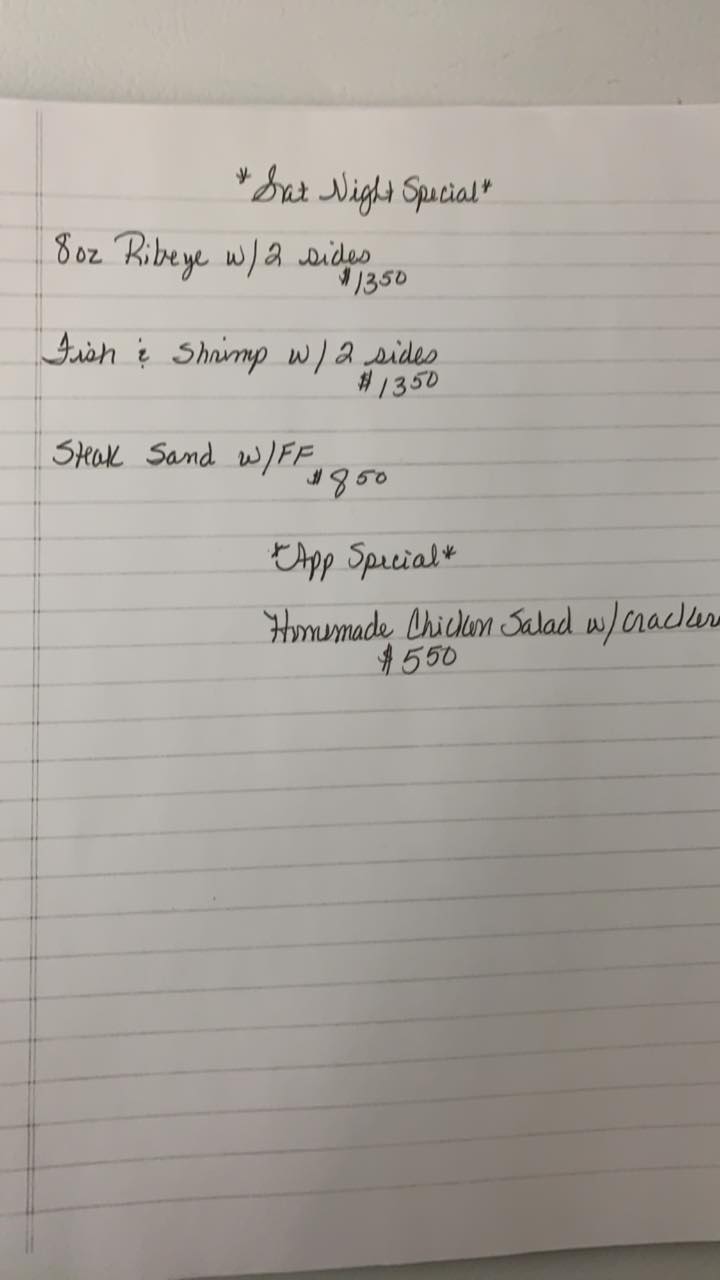 *Sat Night Special*
8oz Ribeye w/2 sides
$1350
Fish & Shrimp w/2 sides
$1350
Steak Sand w/FF
$850
*App Special*
Homemade Chicken Salad w/cracker
$550